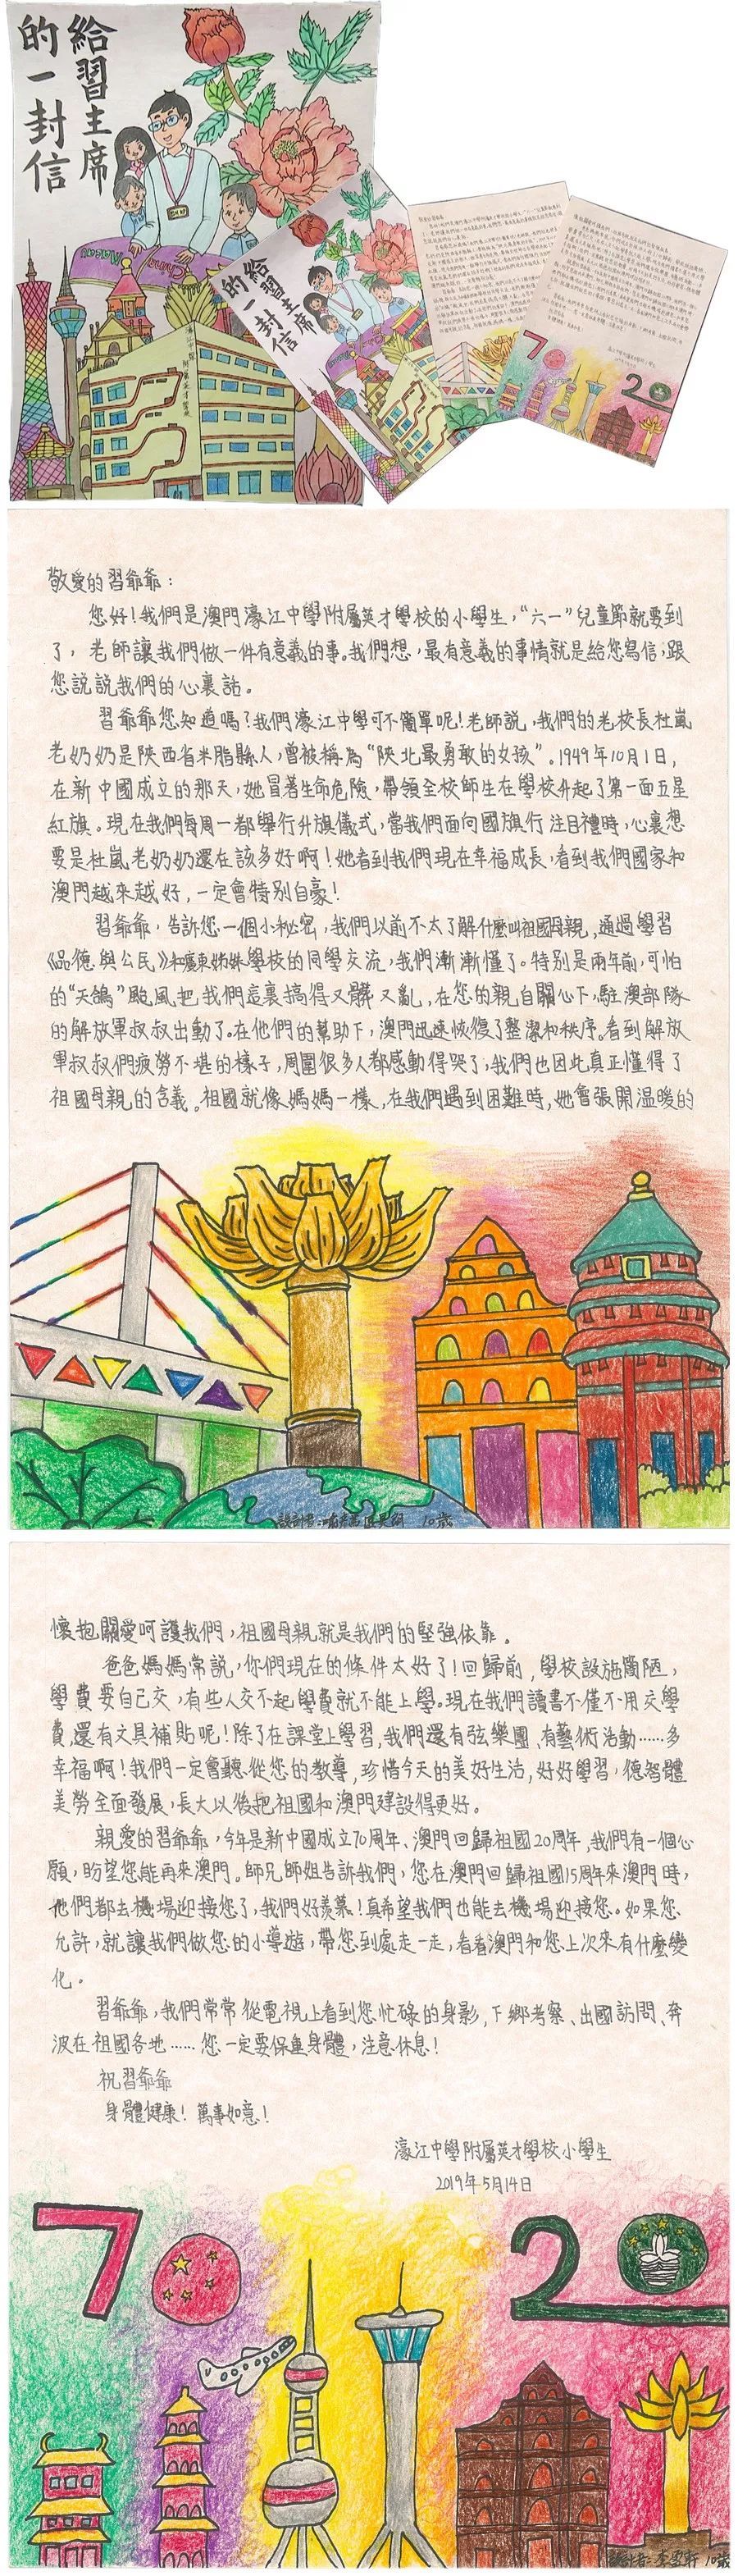 給習主席
的一封信
給習主席
的一封信
敬愛的習爺爺：
您好！我們是澳門濠江中學附屬英才學校的小學生，“六一”兒童節就要到
了，老師讓我們做一件有意義的事。我們想，最有意義的事情就是給您寫信，跟
您說說我們的心裏話。
習爺爺您知道嗎？我們濠江中學可不簡單呢！老師説，我們的老校長杜嵐
老奶奶是陝西省米脂縣人，曾被稱為“陝北最勇敢的女孩”。1949年10月1日，
在新中國成立的那天，她冒著生命危險，帶領全校師生在學校升起了第一面五星
紅旗。現在我們每周一都舉行升旗儀式，當我們面向國旗行注目禮時，心裏想
要是杜嵐老奶奶還在該多好啊！她看到我們現在幸福成長，看到我們國家和
澳門越來越好，一定會特别自豪！
習爺爺，告訴您一個小秘密，我們以前不太了解什麼叫祖國母親，通過學習
《品德與公民》和廣東姊妹學校的同學交流，我們漸漸懂了。特别是兩年前，可怕
的“天鴿”颱風把我們這裏搞得又髒又亂，在您的親自關心下，駐澳部隊
的解放軍叔叔出動了。在他們的幫助下，澳門迅速恢復了整潔和秩序。看到解放
軍叔叔們疲勞不堪的樣子，周圍很多人都感動得哭了，我們也因此真正懂得了
祖國母親的含義。祖國就像媽媽一樣，在我們遇到困難時，她會張開温暖的
10歲
懷抱關愛呵護我們，祖國母親就是我們的堅強依靠。
爸爸媽媽常説，你們現在的條件太好了！回歸前，學校設施簡陋，
學費要自己交，有些人交不起學費就不能上學。現在我們讀書不僅不用交學
費，還有文具補貼呢！除了在課堂上學習，我們還有弦樂團、有藝術活動……多
幸福啊！我們一定會聽從您的教導，珍惜今天的美好生活，好好學習，德智體
美勞全面發展，長大以後把祖國和澳門建設得更好。
親愛的習爺爺，今年是新中國成立70周年、澳門回歸祖國20周年，我們有一個心
願，盼望您能再來澳門。師兄師姐告訴我們，您在澳門回歸祖國15周年來澳門時，
他們都去機場迎接您了，我們好羡慕！真希望我們也能去機場迎接您。如果您
允許，就讓我們做您的小導遊，帶您到處走一走，看看澳門和您上次來有什麼變
化。
習爺爺，我們常常從電視上看到您忙碌的身影，下鄉考察、出國訪問、奔
波在祖國各地……您一定要保重身體，注意休息！
祝習爺爺
身體健康！萬事如意！
濠江中學附屬英才學校小學生
2019年5月14日
70
20
10歲